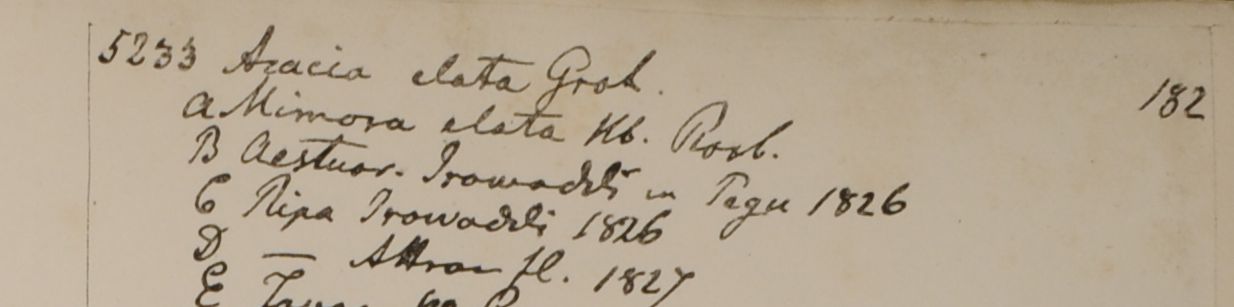 5233 Acacia elata Grah. 182
a Mimosa elata Hb. Roxb.
B Aestuar. Irawaddi in Pegu 1826
C Ripa Irowaddi 1826
D — Attran fl. 1827
E